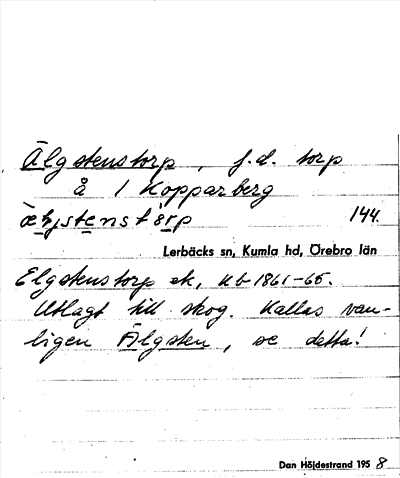 Älgstenstorp, f.d. torp
å 1 Kopparberg
144.
Lerbäcks sn, Kumla hd, Örebro län
Elgstenstorp ek, kb 1861-65.
Utlagt till skog. Kallas van-
ligen Älgsten, se detta!
Dan Höjdestrand 1958